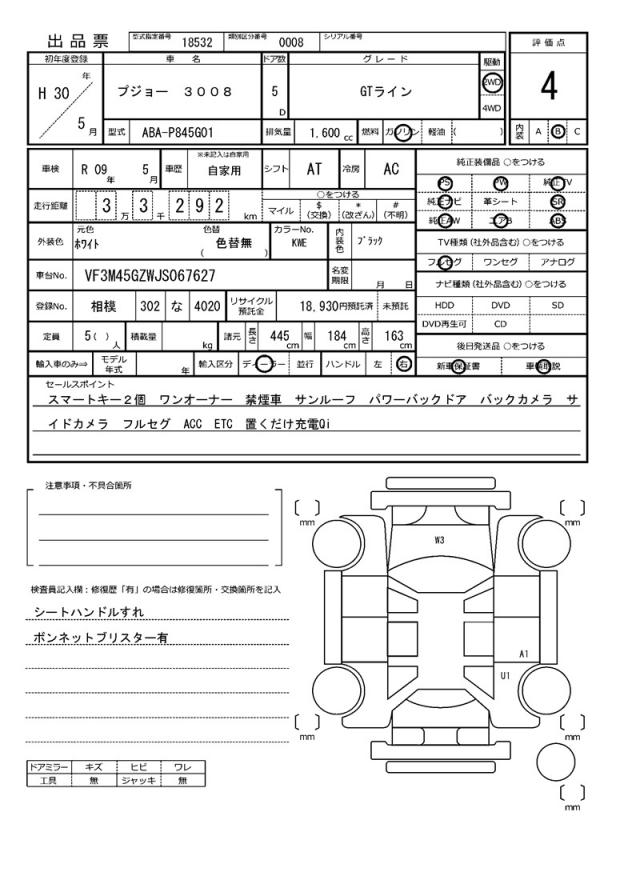 出品票 型式指定番号 18532 類別区分番号 0008 シリアル番号
評価点
4
初年度登録 車名 ドア数 グレード 駆動
H 30 年 5 月 プジョー 3008 5 D GTライン 2WD 4WD
型式 ABA-P845G01 排気量 1.600 cc 燃料 ガソリン 軽油 ( )
内装 A B C
車検 R 09 年 5 月 車歴 ※未記入は自家用 自家用 シフト AT 冷房 AC
走行距離 3 万 3 千 2 9 2 km
○をつける
マイル $ (交換) * (改ざん) # (不明)
外装色 元色 ホワイト 色替 ( 色替無 ) カラーNo. KWE 内装色 ブラック
車台No. VF3M45GZWJS067627 名変期限 月 日
登録No. 相模 302 な 4020 リサイクル預託金 18,930円預託済 未預託
定員 5( ) 人 積載量 kg 諸元 長さ 445 cm 幅 184 cm 高さ 163 cm
輸入車のみ⇒ モデル年式 年 輸入区分 ディーラー 並行 ハンドル 左 右
純正装備品 ○をつける
PS PW 純正TV
純正ナビ 革シート SR
純正AW エアB ABS
TV種類 (社外品含む) ○をつける
フルセグ ワンセグ アナログ
ナビ種類 (社外品含む) ○をつける
HDD DVD SD
DVD再生可 CD
後日発送品 ○をつける
新車保証書 車輌取説
セールスポイント
スマートキー2個 ワンオーナー 禁煙車 サンルーフ パワーバックドア バックカメラ サ
イドカメラ フルセグ ACC ETC 置くだけ充電Qi
注意事項・不具合箇所
検査員記入欄：修復歴「有」の場合は修復箇所・交換箇所を記入
シートハンドルすれ
ボンネットブリスター有
ドアミラー キズ ヒビ ワレ
工具 無 ジャッキ 無
[ ] mm [ ] mm
W3
A1
U1
[ ] mm [ ] mm
[ ] mm